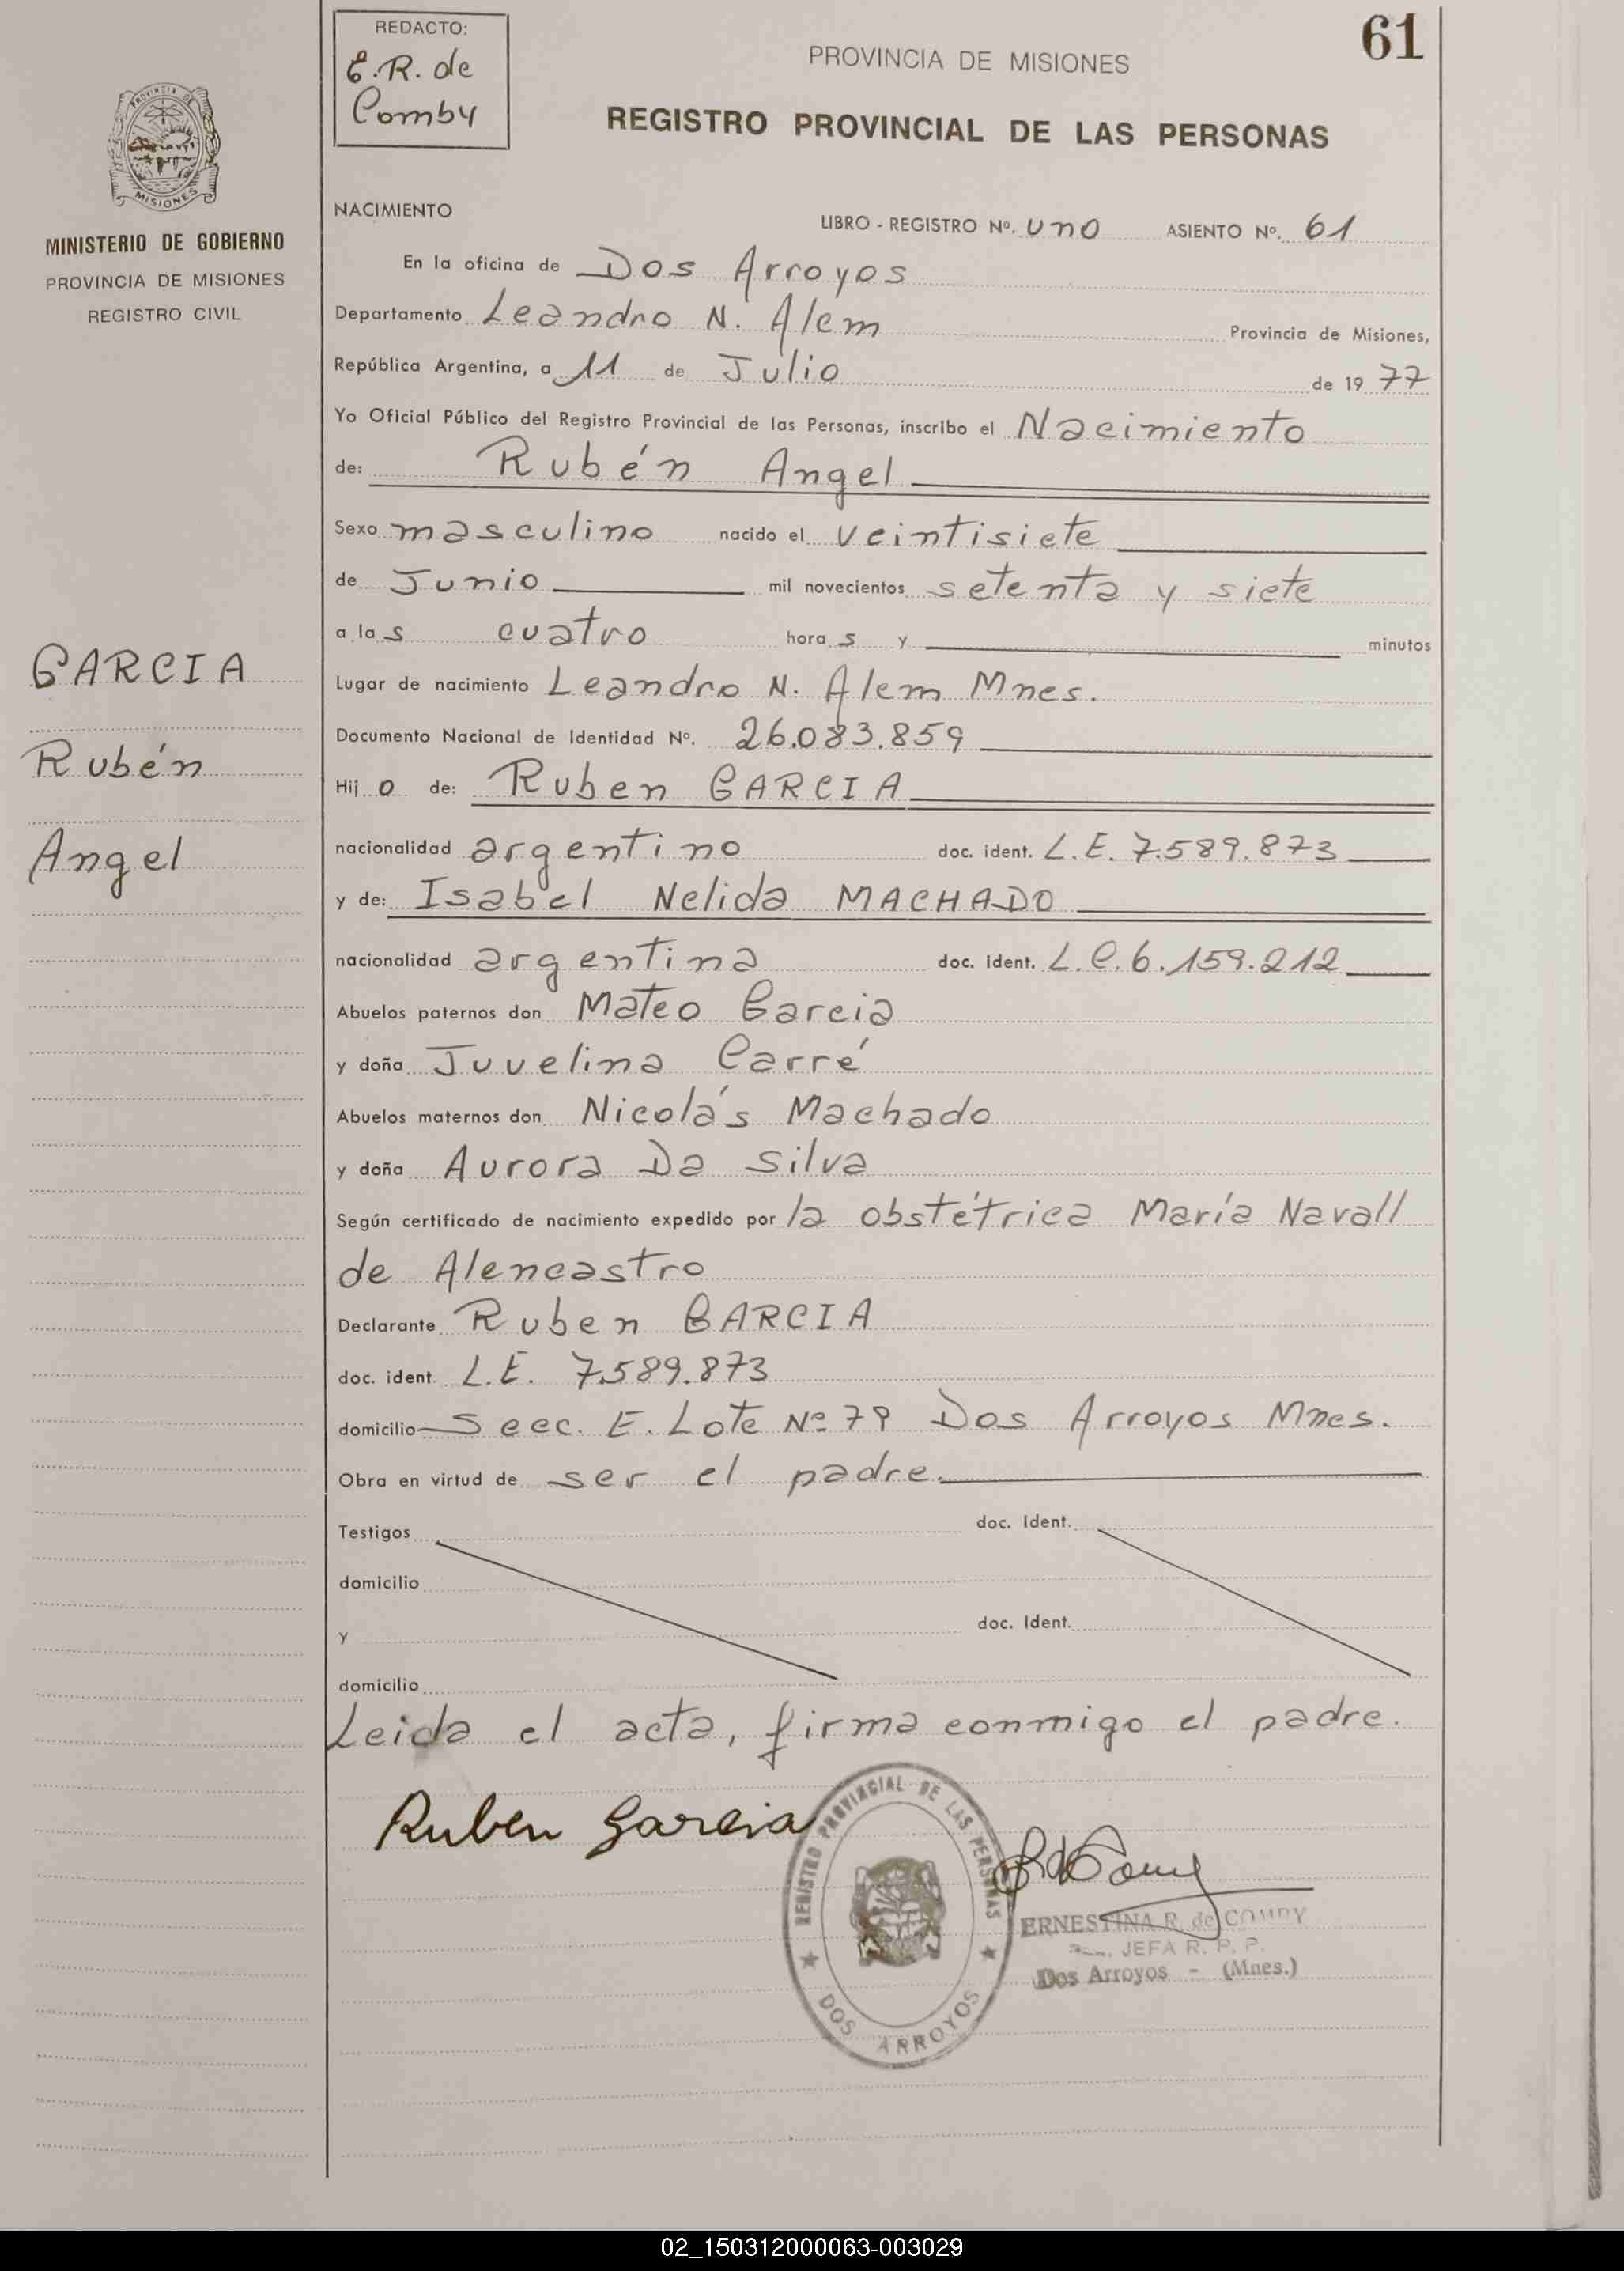 REDACTO:
E.R. de
Comby
61
PROVINCIA DE MISIONES
REGISTRO PROVINCIAL DE LAS PERSONAS
PROVINCIA DE
MISIONES
MINISTERIO DE GOBIERNO
PROVINCIA DE MISIONES
REGISTRO CIVIL
NACIMIENTO
LIBRO - REGISTRO Nº. uno ASIENTO Nº. 61
En la oficina de Dos Arroyos
Departamento Leandro N. Alem Provincia de Misiones,
República Argentina, a 11 de Julio de 19 77
Yo Oficial Público del Registro Provincial de las Personas, inscribo el Nacimiento
de: Rubén Angel
Sexo masculino nacido el veintisiete
de Junio mil novecientos setenta y siete
a las cuatro horas y minutos
Lugar de nacimiento Leandro N. Alem Mnes.
Documento Nacional de Identidad Nº. 26.083.859
Hijo de: Ruben GARCIA
nacionalidad argentino doc. ident. L.E. 7.589.873
y de: Isabel Nelida MACHADO
nacionalidad argentina doc. ident. L.C. 6.159.212
Abuelos paternos don Mateo Garcia
y doña Juvelina Carré
Abuelos maternos don Nicolás Machado
y doña Aurora Da Silva
Según certificado de nacimiento expedido por la obstétrica María Navall
de Alencastro
Declarante Ruben GARCIA
doc. ident. L.E. 7.589.873
domicilio Secc. E. Lote Nº 79 Dos Arroyos Mnes.
Obra en virtud de ser el padre.
Testigos doc. Ident.
domicilio
y doc. Ident.
domicilio
Leida el acta, firma conmigo el padre.
GARCIA
Rubén
Angel
Ruben Garcia
REGISTRO PROVINCIAL DE LAS PERSONAS
DOS ARROYOS
ERNESTINA R. de COMBY
JEFA R. P. P.
Dos Arroyos - (Mnes.)
02_150312000063-003029